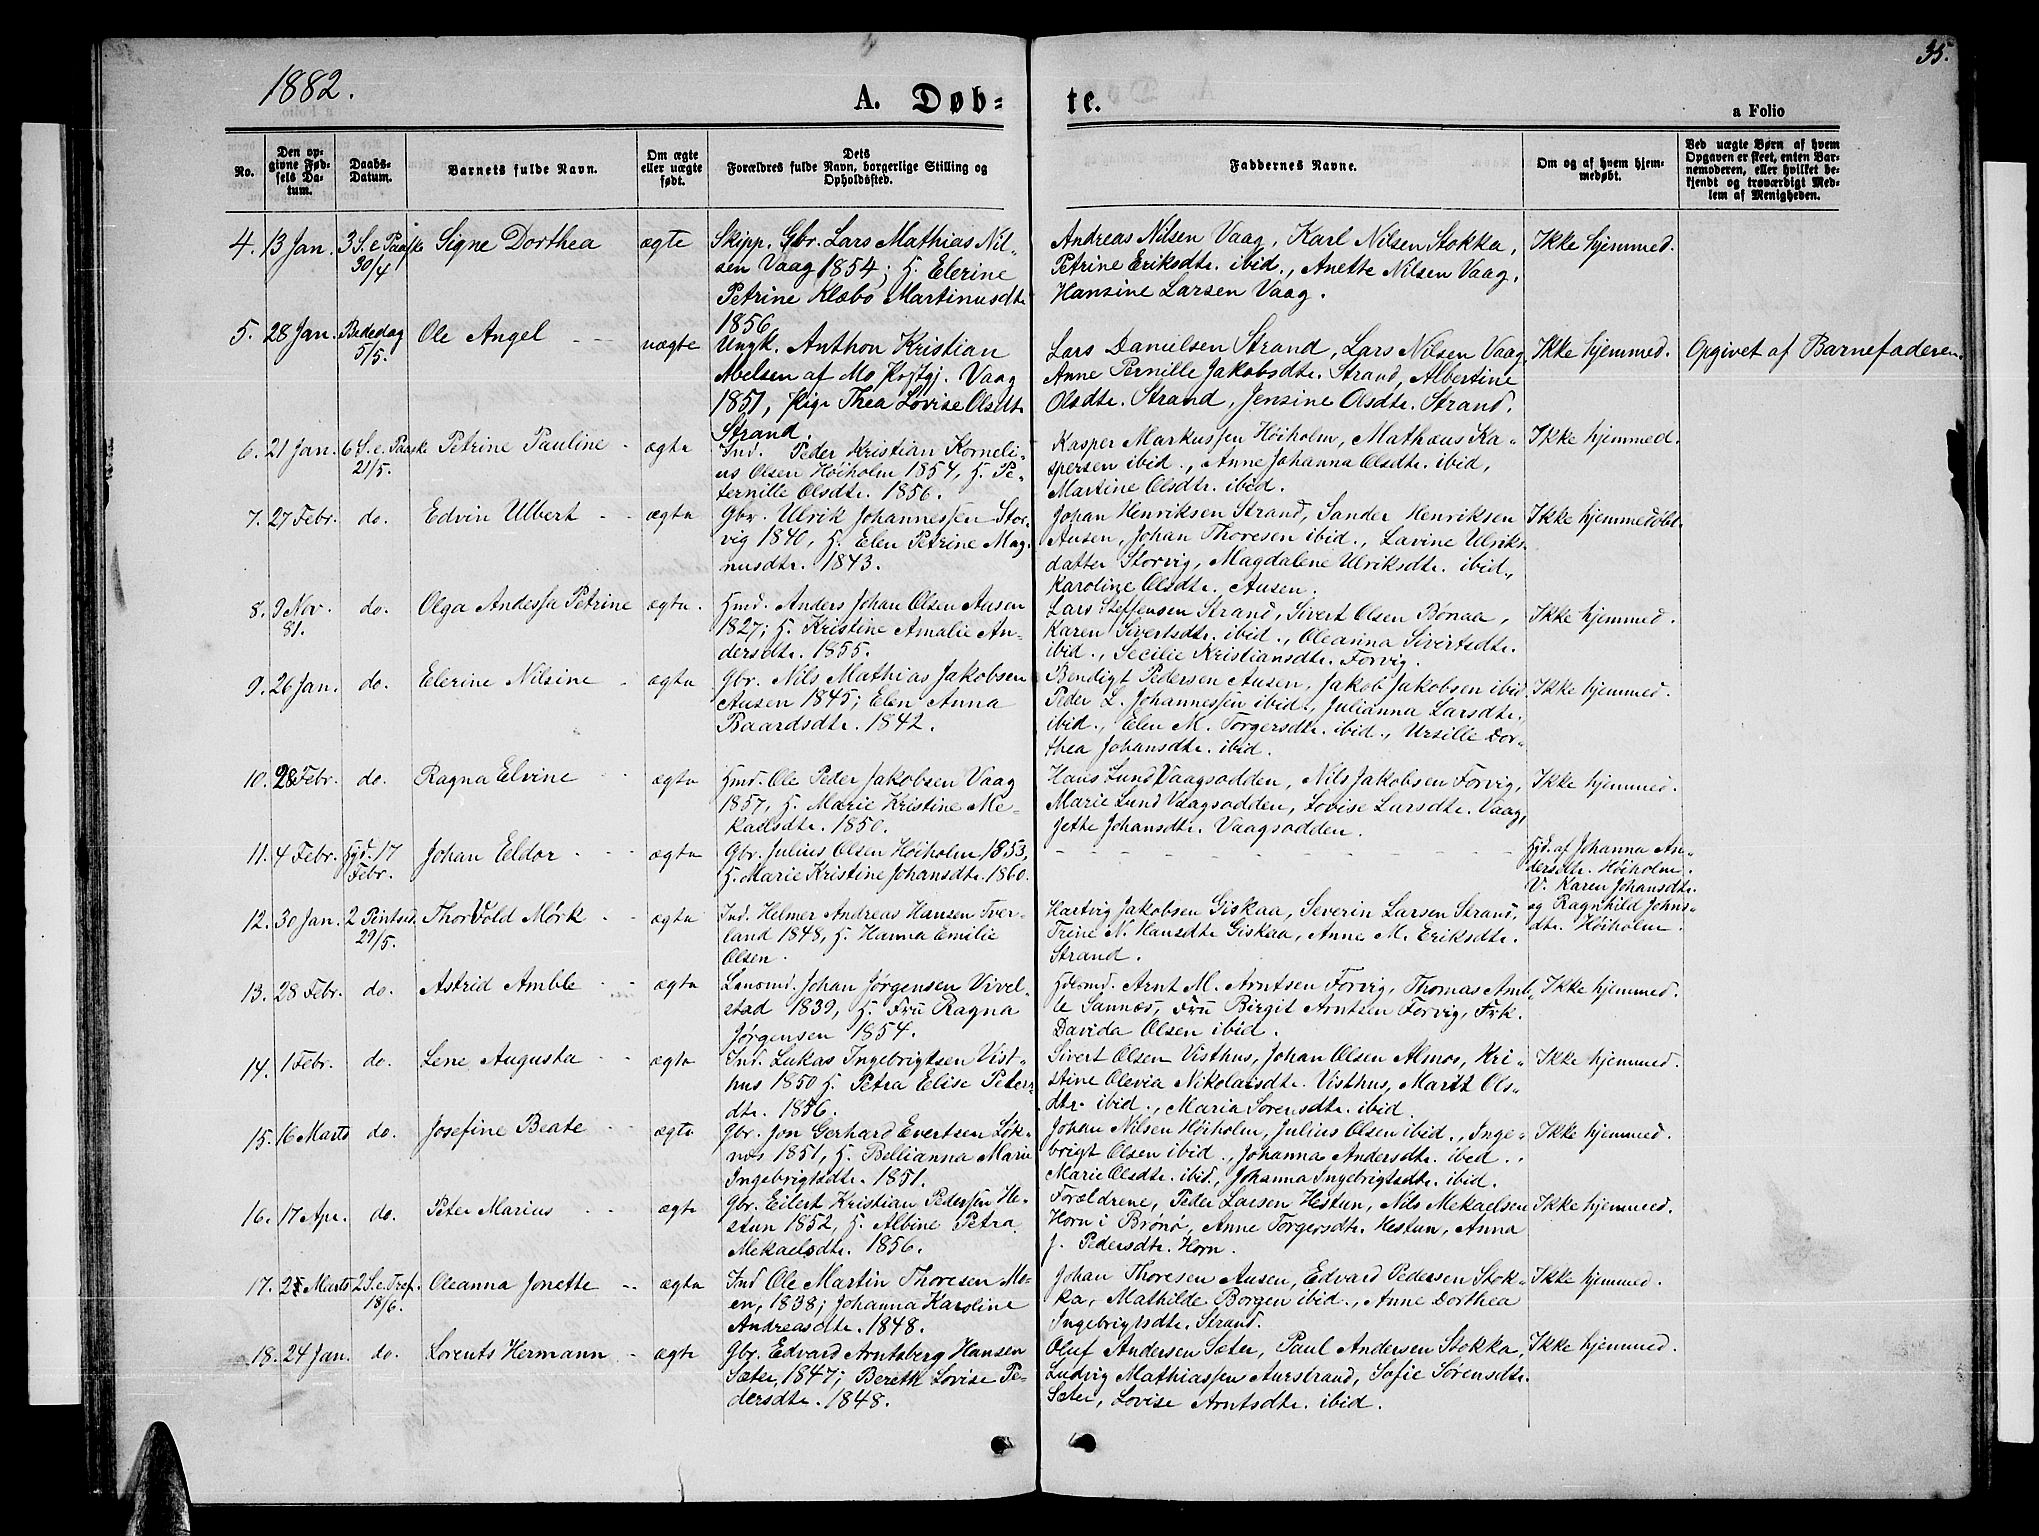 35.
1882.
A. Døb=
te.
a Folio
No.
Den op=
givne Fød=
sels Da=
tum.
Daabs=
Datum.
Barnets fulde Navn.
Om ægte
eller uægte
født.
Dets
Forældres fulde Navn, borgerlige Stilling og
Opholdssted.
Faddernes Navne.
Om og af hvem hjem=
medøbt.
Ved uægte Børn af hvem
Opgaven er skeet, enten Bar=
nemoderen, eller hvilket be=
kjendt og troværdigt Med=
lem af Menigheden.
4. 13 Jan. 3 S. e. Paaske 30/4 Signe Dorthea ægte
Skipp. Gbr. Lars Mathias Nil-
sen Vaag 1854; H. Elerine
Petrine Klæbo Martinusdtr
1856
Andreas Nilsen Vaag, Karl Nilsen Stokka,
Petrine Eriksdtr. ibid., Anette Nilsen Vaag,
Hansine Larsen Vaag.
Ikke hjemmed.
5. 28 Jan. Bededag 5/5. Ole Angel uægte
Ungk. Anthon Kristian
Avelsen af Mo Vaag
1851, Pige Thea Lovise Olsdtr
Strand.
Lars Danielsen Strand, Lars Nilsen Vaag
Anne Pernille Jakobsdtr. Strand, Albertine
Olsdtr. Strand, Jensine Olsdtr. Strand.
Ikke hjemmed.
Opgivet af Barnefaderen.
6. 21 Jan. 6 S. e. Paaske 21/5. Petrine Pauline ægte
Ind. Peder Kristian Korneli-
us Olsen Høiholm 1854, H. Pe-
ternille Olsdtr. 1856.
Kasper Markussen Høiholm, Mathæus Ka-
spersen ibid., Anne Johanna Olsdtr. ibid,
Martine Olsdtr. ibid.
Ikke hjemmed.
7. 27 Febr. do. Edvin Ulbert ægte
Gbr. Ulrik Johannessen Stor-
vig 1840, H. Elen Petrine Mag-
nusdtr. 1843.
Johan Henriksen Strand, Sander Henriksen
Ausen, Johan Thoresen ibid., Lavine Ulriks-
datter Storvig, Magdalene Ulriksdtr. ibid.,
Karoline Olsdtr. Ausen.
Ikke hjemmedøbt.
8. 9 Nov. 81. do. Olga Andessa Petrine ægte.
Hmd. Anders Johan Olsen Ausen
1827; H. Kristine Amalie An-
dersdtr. 1855.
Lars Steffensen Strand, Sivert Olsen Bønaa,
Karen Sivertsdtr. ibid., Oleanna Sivertsdtr.
ibid., Secilie Kristiansdtr. Forvig.
Ikke hjemmed.
9. 26 Jan. do. Elerine Nilsine ægte
Gbr. Nils Mathias Jakobsen
Ausen 1845; Elen Anna
Baardsdtr. 1842.
Bendigt Pedersen Ausen, Jakob Jakobsen ibid
Peder L. Johannessen ibid., Julianna Larsdtr.
ibid., Elen M. Torgersdtr. ibid., Ursille Dor-
thea Johansdtr. ibid.
Ikke hjemmed.
10. 28 Febr. do. Ragna Elvine ægte
Hmd. Ole Peder Jakobsen Vaag
1857, H. Marie Kristine Me-
kaelsdtr. 1850.
Hans Lund Vaagsodden, Nils Jakobsen Forvig,
Marie Lund Vaagsodden, Lovise Larsdtr. Vaag,
Jette Johansdtr. Vaagsodden.
Ikke hjemmed.
11. 4 Febr. Hjd. 17 Febr. Johan Eldor ægte
Gbr. Julius Olsen Høiholm 1853,
H. Marie Kristine Johansdtr. 1860.
Hjd. af Johanna An-
dersdtr. Høiholm.
V. Karen Johansdtr.
og Ragnhild Johns-
dtr. Høiholm.
12. 30 Jan. 2 Pintsed. 29/5. Thorvold Mörk ægte
Ind. Helmer Andreas Hansen Tver-
land 1848, H. Hanna Emilie
Olsen.
Hartvig Jakobsen Giskaa, Severin Larsen Strand,
Trine N. Hansdtr Giskaa, Anne M. Eriksdtr.
Strand.
13. 28 Febr. do. Astrid Amble ægte
Lensmd. Johan Jørgensen Vivel-
stad 1839, H. Fru Ragna
Jørgensen 1854.
Hdlsmd. Arnt M. Arntsen Forvig, Thomas Amb-
le Sannes, Fru Birgit Arntsen Forvig, Frk.
Davida Olsen ibid.
Ikke hjemmed.
14. 1 Febr. do. Lene Augusta ægte
Ind. Lukas Ingebrigtsen Vist-
hus 1850 H. Petra Elise Peters-
dtr. 1856.
Sivert Olsen Visthus, Johan Olsen Almos, Kri-
stine Olevia Nikolaisdtr. Visthus, Marit Ols-
dtr. ibid., Maria Sorensdtr. ibid.
Ikke hjemmed.
15. 16 Marts do. Josefine Beate ægte
Gbr. Jon Gerhard Evertsen Løk-
nes 1851, H. Bellianna Marie
Ingebrigtsdtr. 1851.
Johan Nilsen Høiholm, Julius Olsen ibid., Inge-
brigt Olsen ibid., Johanna Andersdtr. ibid.
Marie Olsdtr. ibid., Johanna Ingebrigtsdtr. ibid.
Ikke hjemmed.
16. 17 Apr. do. Peter Marius ægte
Gbr. Eilert Kristian Pederssen He-
stun 1852, H. Albine Petra
Mekaelsdtr. 1856.
Forældrene, Peder Larsen Hestun, Nils Mekaelsen
Horn i Brønø, Anne Torgersdtr. Hestun, Anna
J. Pedersdtr. Horn.
Ikke hjemmed.
17. Marts 2 S. e. Tref. 18/6. Oleanna Jonette ægte
Ind Ole Martin Thoresen Mo-
en, 1838; Johanna Karoline
Andreasdtr. 1848.
Johan Thoresen Ausen, Edvard Pedersen Stok-
ka, Mathilde Borgen ibid., Anne Dorthea
Ingebrigtsdtr. Strand.
Ikke hjemmed.
18. 24 Jan. do. Lorents Hermann ægte
Gbr. Edvard Arntsberg Hansen
Sæter, 1847; Bereth Lovise Pe-
dersdtr. 1848.
Oluf Andersen Sæter, Paul Andersen Stokka,
Ludvig Mathiassen Aurstrand, Sofie Sørensdtr.
Sæter, Lovise Arntsdtr. ibid.
Ikke hjemmed.